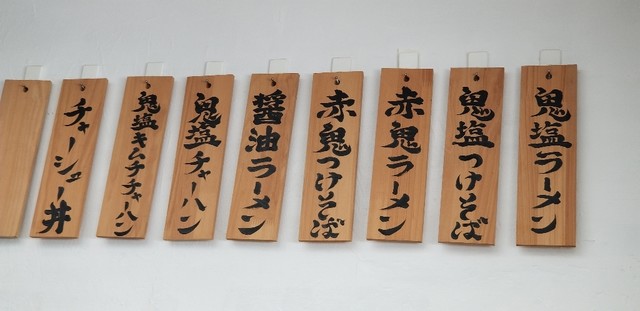 鬼塩ラーメン
鬼塩つけそば
赤鬼ラーメン
赤鬼つけそば
醤油ラーメン
鬼塩チャーハン
鬼塩キムチチャーハン
チャーシュー丼